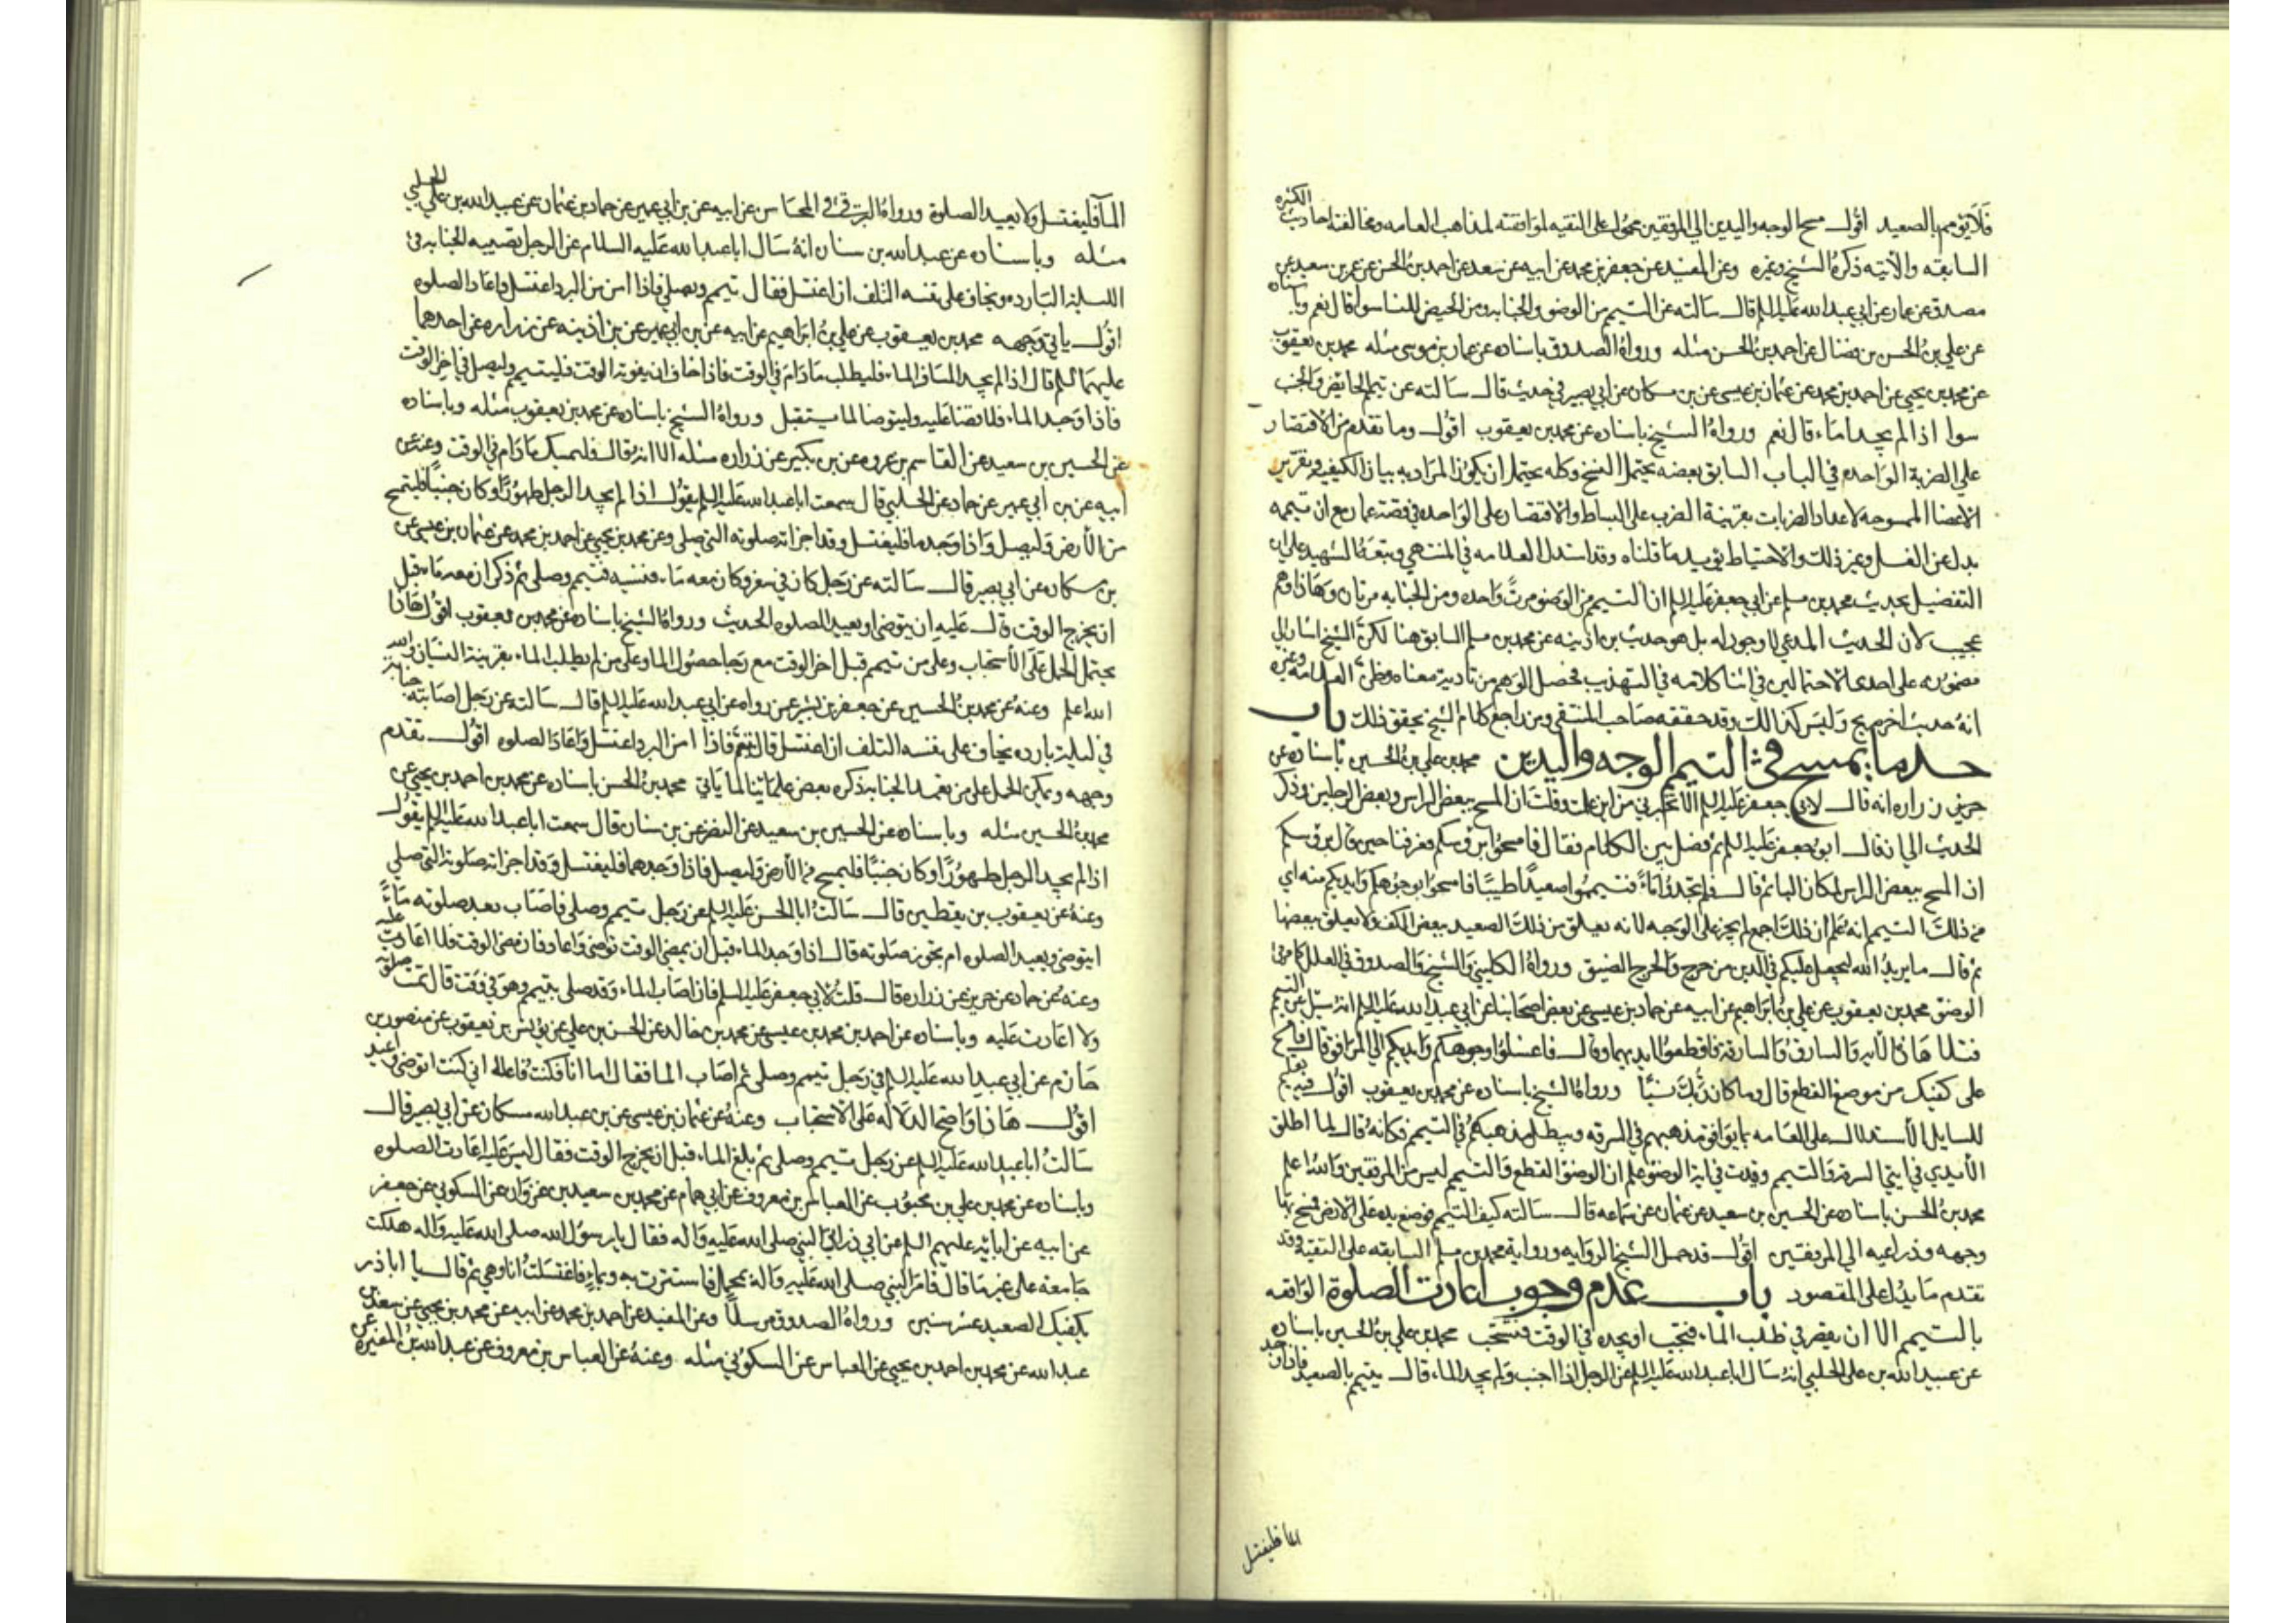 فلا يوهم بالصعيد اقول مسح الوجه واليدين الي المرفقين محمول على التقيه لموافقته لمذاهب العامه ومخالفته احاديث الكثيره
السابقه والآتيه ذكره الشيخ وغيره وعن المفيد عن جعفر بن محمد عن ابيه عن سعد عن احمد بن الحسن عن عمر بن سعيد عن
مصدق عن عمار عن ابي عبد الله عليه السلم قال سالته عن التيمم من الوضو والجنابه ومن الحيض للنسا سوا قال نعم وباسناده
عن علي بن الحسن بن فضال عن احمد بن الحسن مثله ورواه الصدوق باسناده عن عمار بن موسى مثله محمد بن يعقوب
عن محمد بن يحيى عن احمد بن محمد عن عثمان بن عيسى عن بن مسكان عن ابي بصير في حديث قال سالته عن تيمم الحايض والجنب
سوا اذا لم يجدا ماء قال نعم ورواه الشيخ باسناده عن محمد بن يعقوب اقول وما تقدم من الاقتصار
علي الضربة الواحده في الباب السابق بعضه يحتمل النسخ وكله يحتمل ان يكون المراد به بيان الكيفيه وتقرير
الاعضا الممسوحه لا عداد الضربات بقرينة الضرب على البساط والاقتصار على الواحده في قصة عمار مع ان تيممه
بدل عن الغسل وغير ذلك والاحتياط يؤيد ما قلناه وقد استدل العلامه في المنتهي وتبعه الشهيد علي
التفضيل بحديث محمد بن مسلم عن ابي جعفر عليه السلم ان التيمم من الوضو مرة واحده ومن الجنابه مرتان وهاذا وهم
عجيب لان الحديث المدعي لا وجود له بل هو حديث بن اذينه عن محمد بن مسلم السابق هنا لكن الشيخ اشار الي
مضمونه على احدى الاحتمالين في اثنا كلامه في التهذيب فحصل الوهم من تادية معناه وظن العلامه وغيره
انه حديث اخر صريح وليس كذالك وقد حققه صاحب المنتقى ومن راجع كلام الشيخ تحقق ذلك باب
حد ما يمسح في التيمم الوجه واليدين محمد بن علي بن الحسين باسناده عن
زراره انه قال لابي جعفر عليه السلم الا تخبرني من اين علمت وقلت ان المسح ببعض الراس وبعض الرجلين وذكر
الحديث الى ان قال ابو جعفر عليه السلم ثم فصل بين الكلام فقال فامسحوا برؤسكم فعرفنا حين قال برؤسكم
ان المسح ببعض الراس لمكان البا ثم قال فلم تجدوا ماءً فتيمموا صعيدًا طيبًا فامسحوا بوجوهكم وايديكم منه اي
من ذلك التيمم انه علم ان ذلك اجمع لم يجر على الوجه لانه يعلق من ذلك الصعيد ببعض الكف ولا يعلق ببعضها
ثم قال ما يريد الله ليجعل عليكم في الدين من حرج والحرج الضيق ورواه الكليني والشيخ والصدوق في العلل كما مر في
الوضو محمد بن يعقوب عن علي بن ابراهيم عن ابيه عن حماد بن عيسى عن بعض اصحابنا عن ابي عبد الله عليه السلم انه سئل عن التيمم
فتلا هاذه الآيه والسارق والسارقة فاقطعوا ايديهما وقال فاغسلوا وجوهكم وايديكم الي المرافق قال فامسح
على كفيك من موضع القطع قال وما كان ربك نسيًّا ورواه الشيخ باسناده عن محمد بن يعقوب اقول فيه تعليم
للسايل الأستدلال على العامه بما يوافق مذهبهم في السرقه ويبطل مذهبهم في التيمم فكانه قال لما اطلق
الأيدي في ايتي السرقه والتيمم وقيدت في اية الوضو علم ان الوضو القطع والتيمم ليس من المرفقين والله اعلم
محمد بن الحسن باسناده عن الحسين بن سعيد عن عثمان عن سماعه قال سالته كيف التيمم فوضع يده على الارض فمسح بها
وجهه وذراعيه الي المرفقين اقول قد حمل الشيخ الروايه ورواية محمد بن مسلم السابقه على التقية وقد
تقدم ما يدل على المقصود باب عدم وجوب اعادت الصلوة الواقعه
بالتيمم الا ان يقصر في طلب الماء فتجب او يجده في الوقت فتستحب محمد بن علي بن الحسين باسناده
عن عبيد الله بن علي الحلبي انه سال ابا عبد الله عليه السلم عن الرجل اذا اجنب ولم يجد الماء قال يتيمم بالصعيد فاذا وجد
الما فليغتسل
الما فليغتسل ولا يعيد الصلوة ورواه البرقي في المحاسن عن ابيه عن بن ابي عمير عن حماد بن عثمان عن عبيد الله بن علي الحلبي
مثله وباسناده عن عبد الله بن سنان انه سال ابا عبد الله عليه السلام عن الرجل تصيبه الجنابه في
الليلة البارده ويخاف على نفسه التلف ان اغتسل فقال تيمم ويصلي فاذا امن من البرد اغتسل واعاد الصلوه
اقول ياتي وجهه محمد بن يعقوب عن علي بن ابراهيم عن ابيه عن بن ابي عمير عن بن اذينه عن زراره عن احدهما
عليهما السلم قال اذا لم يجد المسافر الماء فليطلب ما دام في الوقت فاذا خاف ان يفوته الوقت فليتيمم وليصل في اخر الوقت
فاذا وجد الماء فلا قضا عليه وليتوضا لما يستقبل ورواه الشيخ باسناده عن محمد بن يعقوب مثله وباسناده
عن الحسين بن سعيد عن القاسم بن عروه عن بن بكير عن زراره مثله الا انه قال فليمسك ما دام في الوقت وعنه عن
ابيه عن بن ابي عمير عن حماد عن الحلبي قال سمعت ابا عبد الله عليه السلم يقول اذا لم يجد الرجل طهورًا وكان جنبًا فليتمسح
من الأرض وليصل واذا وجد ما فليغتسل وقد اجزاته صلوته التي صلى وعن محمد بن يحيى عن احمد بن محمد عن عثمان بن عيسى عن
بن مسكان عن ابي بصير قال سالته عن رجل كان في سفر وكان معه ماء فنسيه فتيمم وصلى ثم ذكر ان معه ماء قبل
ان يخرج الوقت قال عليه ان يتوضا ويعيد الصلوه الحديث ورواه الشيخ باسناده عن محمد بن يعقوب اقول هاذا
يحتمل الحمل على الأستحباب وعلى من تيمم قبل اخر الوقت مع رجا حصول الما وعلى من لم يطلب الماء بقرينة النسيان والله
الله اعلم وعنه عن محمد بن الحسين عن جعفر بن بشير عن من رواه عن ابي عبد الله عليه السلم قال سالته عن رجل اصابته جنابة
في ليلة بارده يخاف على نفسه التلف ان اغتسل قال يتيمم فاذا امن البرد اغتسل واعاد الصلوه اقول تقدم
وجهه ويمكن الحمل على من تعمد الجنابه ذكره بعض علمائنا لما ياتي محمد بن الحسن باسناده عن محمد بن احمد بن يحيى عن
محمد بن الحسين مثله وباسناده عن الحسين بن سعيد عن النضر عن بن سنان قال سمعت ابا عبد الله عليه السلم يقول
اذا لم يجد الرجل طهورًا وكان جنبًا فليمسح من الأرض وليصل فاذا وجد ماء فليغتسل وقد اجزاته صلوته التي صلى
وعنه عن يعقوب بن يقطين قال سالت ابا الحسن عليه السلم عن رجل تيمم وصلى فاصاب بعد صلوته ماءً
ايتوضى ويعيد الصلوه ام تجوز صلوته قال اذا وجد الماء قبل ان يمضي الوقت توضى واعاد فان مضى الوقت فلا اعادت عليه
وعنه عن حماد عن حريز عن زراره قال قلت لابي جعفر عليه السلم فان اصاب الماء وقد صلى بتيمم وهو في وقت قال تمت صلوته
ولا اعادت عليه وباسناده عن احمد بن محمد بن عيسى عن محمد بن خالد عن الحسن بن علي عن يونس بن يعقوب عن منصور بن
حازم عن ابي عبد الله عليه السلم في رجل تيمم وصلى ثم اصاب الما فقال اما انا فكنت فاعلا اني كنت اتوضى واعيد
اقول هاذا واضح الدلاله على الاستحباب وعنه عن عثمان بن عيسى عن بن عبد الله مسكان عن ابي بصير قال
سالت ابا عبد الله عليه السلم عن رجل تيمم وصلى ثم بلغ الماء قبل ان يخرج الوقت فقال ليس عليه اعادت الصلوه
وباسناده عن محمد بن علي بن محبوب عن العباس بن معروف عن ابي همام عن محمد بن سعيد بن غزوان عن السكوني عن جعفر
عن ابيه عن ابائه عليهم السلم عن ابي ذر اتى النبي صلى الله عليه وآله فقال يا رسول الله صلى الله عليه وآله هلكت
جامعت على غير ما قال فامر النبي صلى الله عليه وآله بمحمل فاستترت به وبماءٍ فاغتسلت انا وهي ثم قال يا ابا ذر
يكفيك الصعيد عشر سنين ورواه الصدوق مرسلًا وعن المفيد عن احمد بن محمد عن ابيه عن محمد بن يحيى عن سعد بن
عبد الله عن محمد بن احمد بن يحيى عن العباس عن السكوني مثله وعنه عن العباس بن معروف عن عبد الله بن المغيره عن